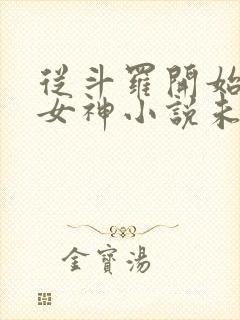 從斗羅開始
女神小說未
金寶湯